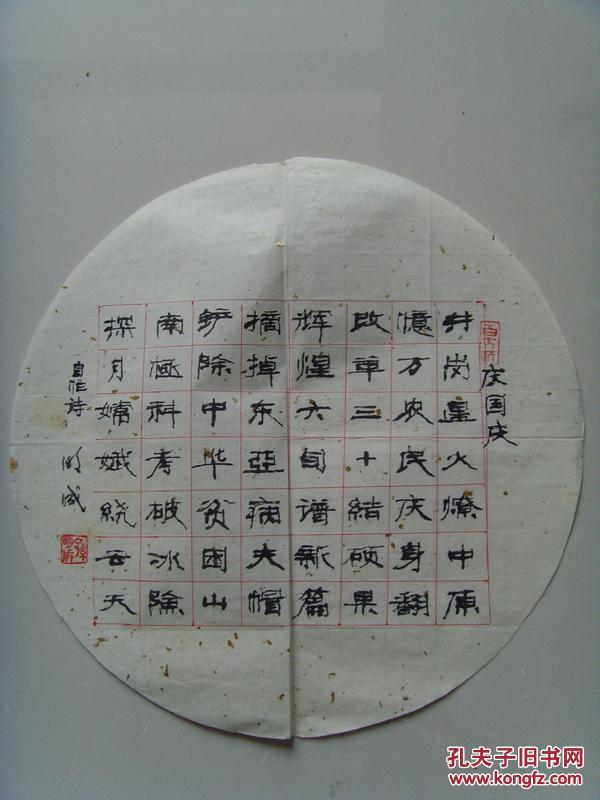 庆国庆
井岗星火燎中原
憶万农民庆身翻
改革三十結硕果
辉煌六旬谱新篇
摘掉东亞病夫帽
铲除中华贫困山
南極科考破冰险
探月嫦娥绕云天
自作诗
孔夫子旧书网
www.kongfz.com